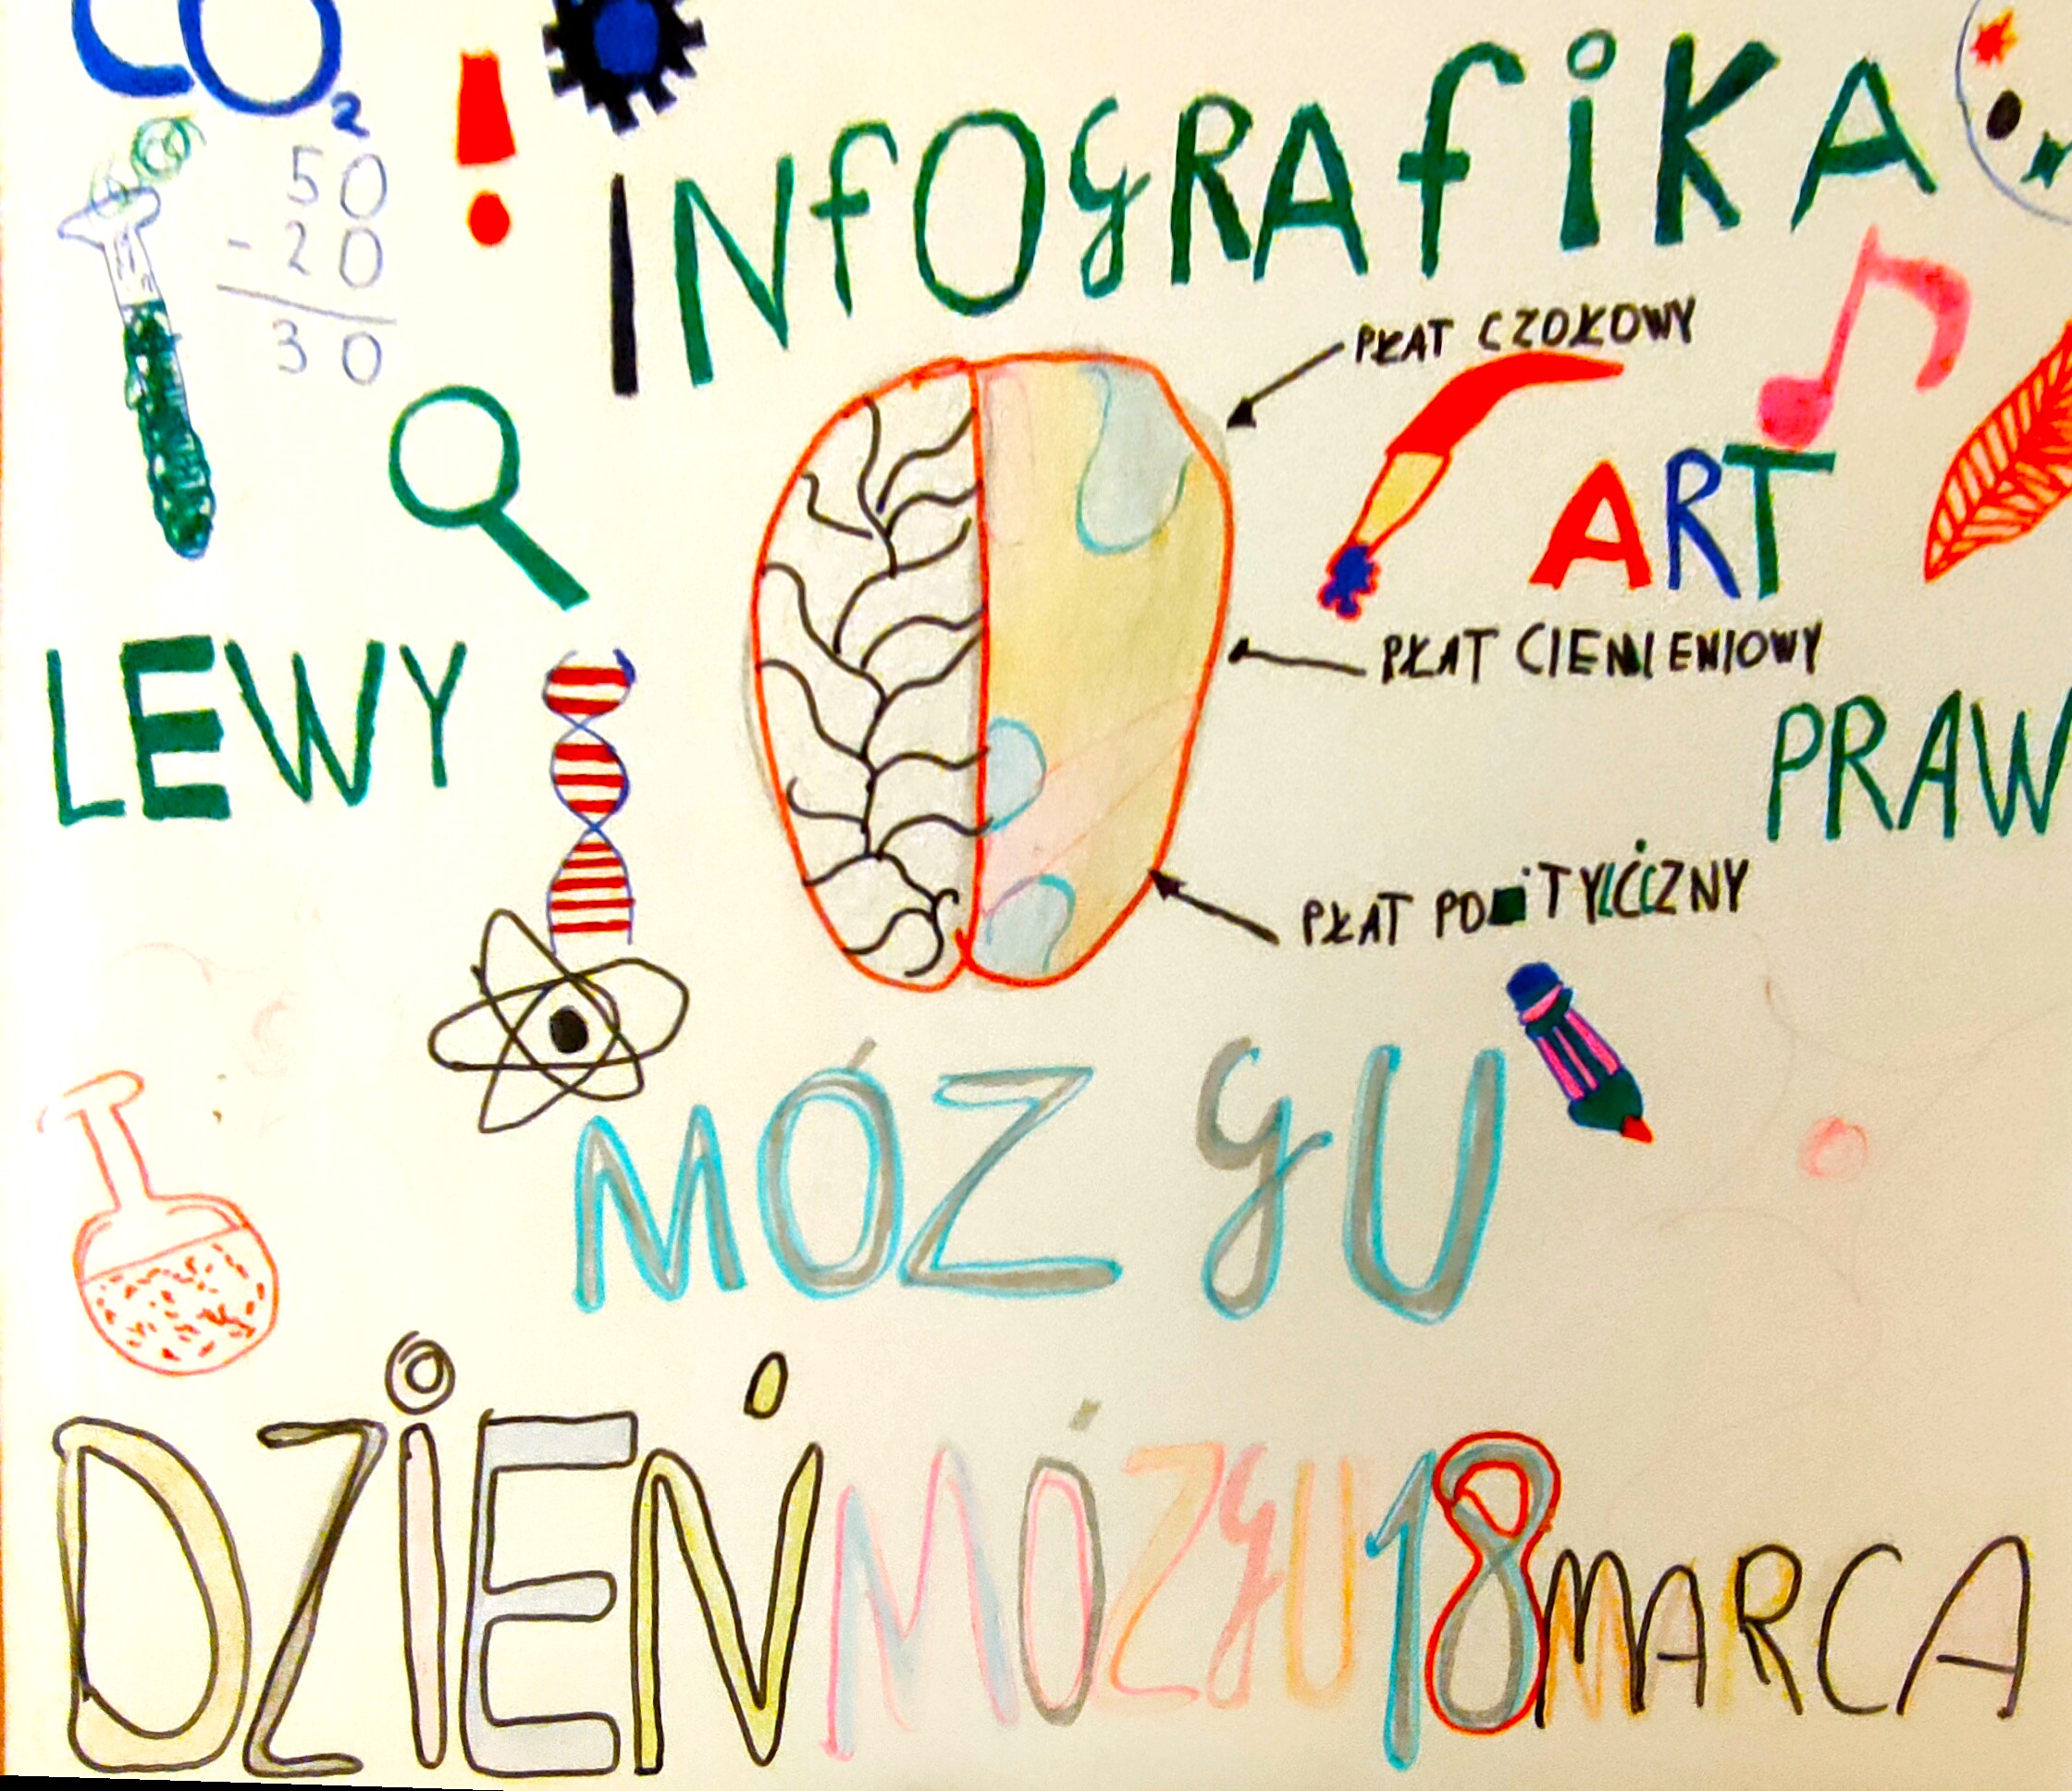 CO2
50
- 20
30
!
INfOgRAfiKA
PŁAT CZOŁOWY
ART
PŁAT CIEMIENIOWY
LEWY
PRAW
PŁAT
MÓZgU
DZIEŃ MÓZgU 18 MARCA